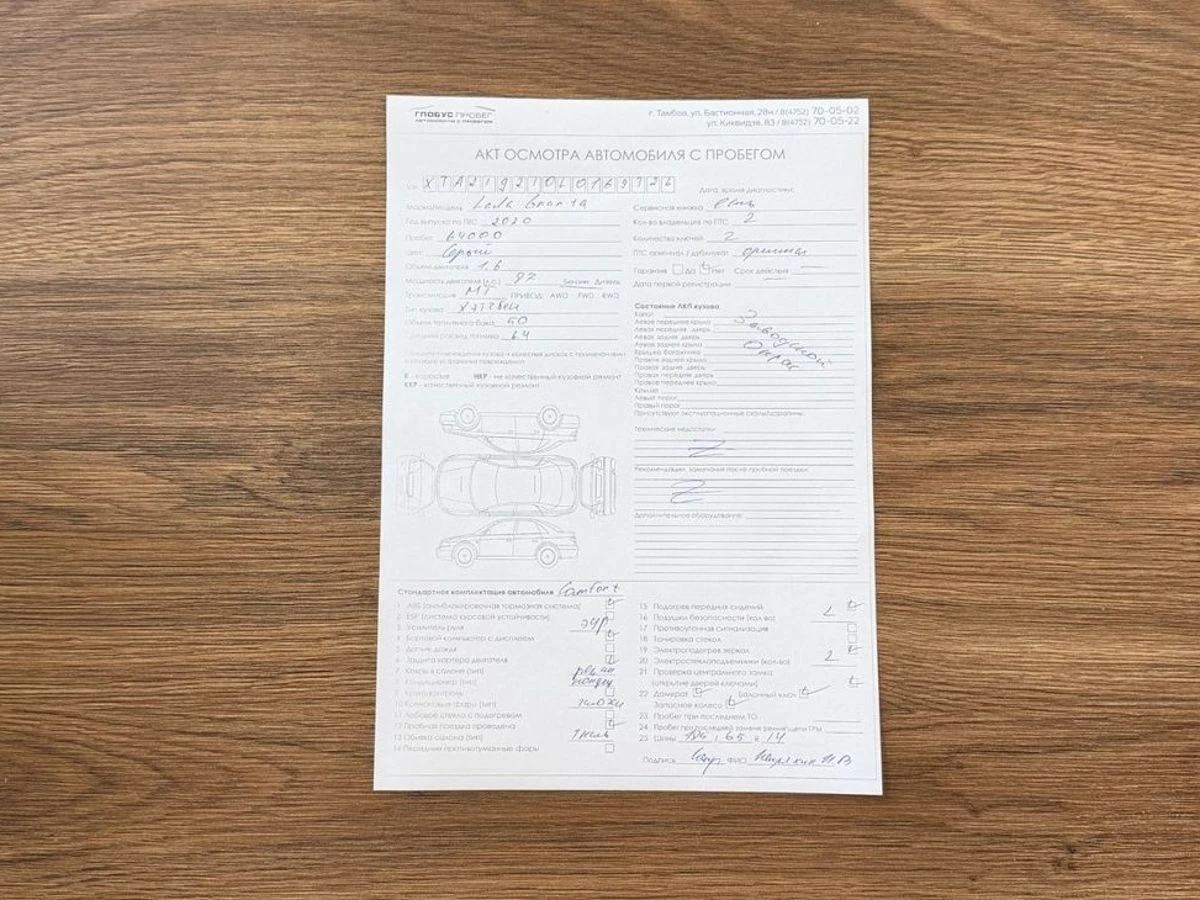 ГЛОБУС ПРОБЕГ
АВТОМОБИЛИ С ПРОБЕГОМ
г. Тамбов, ул. Бастионная, 28н / 8(4752) 70-05-02
ул. Киквидзе, 83 / 8(4752) 70-05-22
АКТ ОСМОТРА АВТОМОБИЛЯ С ПРОБЕГОМ
Дата, время диагностики:
Марка/Модель Lada Granta
Год выпуска по ПТС 2020
Пробег 64000
Цвет Серый
Объем двигателя 1.6
Мощность двигателя (л.с.) 87 Бензин Дизель
Трансмиссия МТ ПРИВОД: AWD FWD RWD
Тип кузова Хэтчбек
Объем топливного бака 50
Средний расход топлива 6.4
K - коррозия НКР - не качественный кузовной ремонт
ККР - качественный кузовной ремонт
Сервисная книжка есть
Кол-во владельцев по ПТС 2
Количество ключей 2
ПТС оригинал / дубликат оригинал
Гарантия Да Нет Срок действия —
Дата первой регистрации
Состояние ЛКП кузова
Капот
Левое переднее крыло
Левая передняя дверь
Левая задняя дверь
Левое заднее крыло
Крышка багажника
Правое заднее крыло
Правая задняя дверь
Правая передняя дверь
Правое переднее крыло
Крыша
Левый порог
Правый порог
Заводской
Окрас
Присутствуют эксплуатационные сколы/царапины.
Технические недостатки:
Z
Рекомендации, замечания после пробной поездки:
Z
Дополнительное оборудование:
Стандартная комплектация автомобиля Comfort
1 ABS (антиблокировочная тормозная система)
2 ESP (система курсовой устойчивости)
3 Усилитель руля ЭУР
4 Бортовой компьютер с дисплеем
5 Датчик дождя
6 Защита картера двигателя
7 Климат в салоне (тип)
8 Кондиционер (тип)
9 Круиз-контроль
10 Ксеноновые фары (тип)
11 Лобовое стекло с подогревом
12 Пробная поездка проведена
13 Обивка салона (тип) Ткань
14 Передние противотуманные фары
15 Подогрев передних сидений
16 Подушки безопасности (кол-во)
17 Противоугонная сигнализация
18 Тонировка стекол
19 Электроподогрев зеркал
20 Электростеклоподъемники (кол-во) 2
21 Проверка центрального замка
(открытие дверей ключами)
22 Домкрат Балонный ключ
Запасное колесо
23 Пробег при последнем ТО
24 Пробег при последней замене ремня/цепи ГРМ
25 Шины
Подпись ФИО